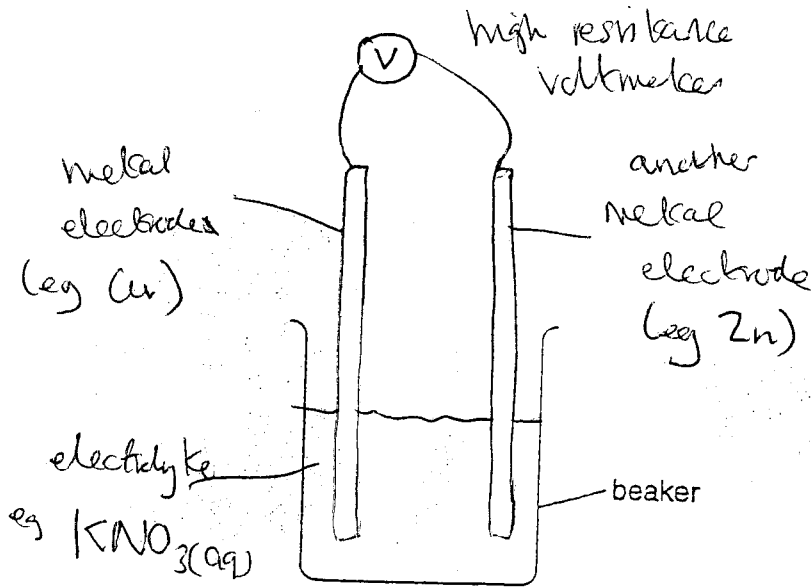 V
high resistance
voltmeter
metal
electrodes
(eg Cu)
another
metal
electrode
(eg Zn)
electrolyte
eg KNO₃(aq)
beaker